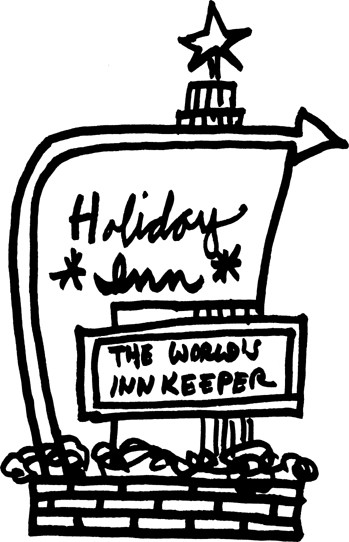 Holiday
*Inn*
THE WORLD'S
INNKEEPER